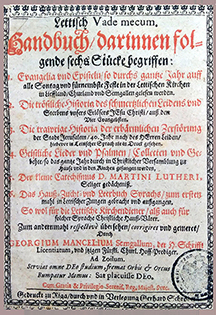 Lettisch Vade mecum,
Handbuch/ darinnen fol-
gende sechs Stücke begriffen:
1. Evangelia und Episteln/ so durchs gantze Jahr auff
alle Sontag und fürnembste Feste in der Lettischen Kirchen
in Lieffland/ und Semgallen gelesen werden.
Die tröstliche Historia des schmertzlichen Leidens und
Sterbens unsers Erlösers JEsu Christi/ auß den
Vier Evangelisten.
Die trawrige Historia der erbärmlichen Zerstörung
der Stadt Jerusalem/ 40. Jahr nach des HErren Leiden/
Lettischer Sprach nie in Druck gesehen.
Geistliche Lieder und Psalmen/ Collecten und Ge-
bethe/ so das gantze Jahr durch in Christlicher Versamblung zu
Hause und in den Kirchen gesungen werden.
Der kleine Catechismus D. MARTINI LUTHERI,
Seliger gedächtniß.
Das Hauß-Zucht- und Lehrbuch Syrachs/ zum ersten
mahl in Lettischer Zungen gebracht und auffgangen.
So wol für die Lettische Kirchendiener/ als auch für
solcher Sprache Christliche Hauß-Väter.
Zum andernmahl übersehen/ corrigiret und gemehret/
Durch
GEORGIUM MANCELIUM Semgallum, der H. Schrifft
Licentiatum, und jetzigen Fürstl. Churl. Hoff-Prediger.
Ad Zoilum.
Serviat omne DEo studium, fremat Orbis & Orcus
Rumpatur Momus: Sat placuisse DEo.
Cum Gratia & Privilegio
Gedruckt zu Riga/ durch und in Verlegung Gerhard Schröders